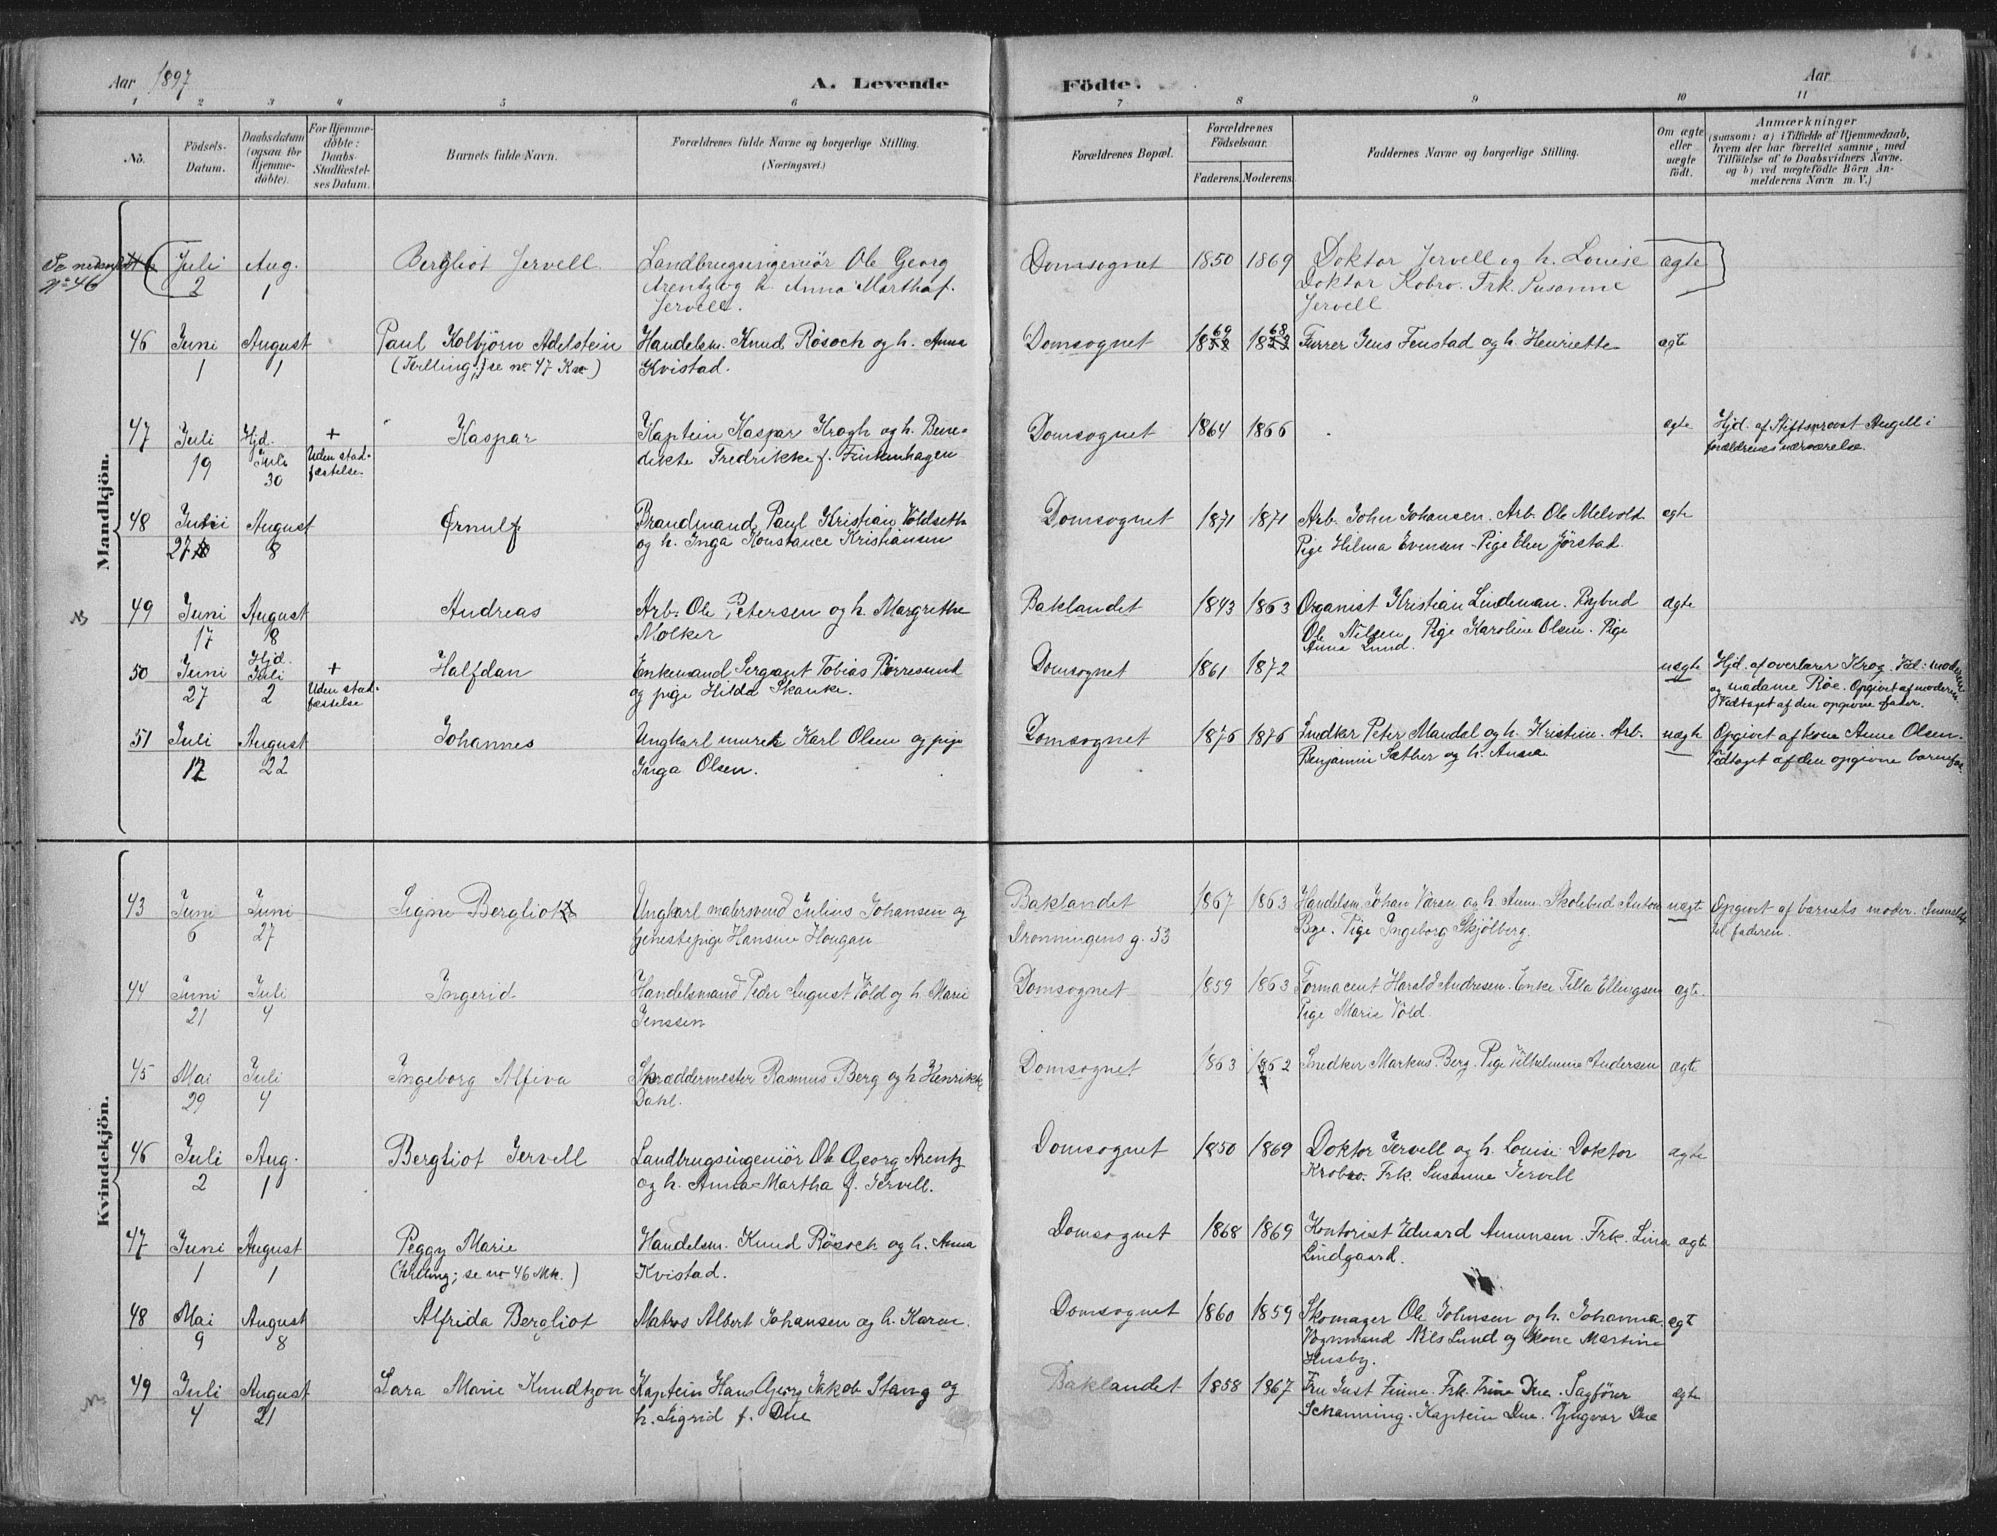 Aar 1897
A. Levende
Födte.
Aar
1 2 3 4 5 6 7 8 9 10 11
No.
Födsels-
Datum.
Daabsdatum
(ogsaa for
Hjemme-
döbte).
For Hjemme-
döbte:
Daabs-
Stadfæstel-
ses Datum.
Barnets fulde Navn.
Forældrenes fulde Navne og borgerlige Stilling.
(Næringsvei.)
Forældrenes Bopæl.
Forældrenes
Födselsaar.
Faderens. Moderens.
Faddernes Navne og borgerlige Stilling.
Om ægte
eller
uægte
födt.
Anmærkninger
(saasom: a) i Tilfælde af Hjemmedaab,
hvem der har forrettet samme, med
Tilföielse af to Daabsvidners Navne.
og b) ved uægtefödte Börn An-
melderens Navn m. V.)
Mandkjön.
Se nedenfor
No 46
Juli
2
Aug.
1
Bergliot Jervell.
Landbrugsingeniør Ole Georg
Arentz og h. Anna Martha f.
Jervell.
Domsognet
1850 1869
Doktor Jervell og h. Louise
Doktor Kobro. Frk. Susanne
Jervell
ægte
46
Juni
1
August
1
Paul Kolbjörn Adelstein
(Tvilling; se no 47 Kv.)
Handelsm. Knud Rösoch og h. Anna
Kvistad.
Domsognet
Furrer Jens Fenstad og h. Henriette
ægte
47
Juli
19
Hjd.
Juli
30
+
Uden stad-
fæstelse
Kaspar
Kaptein Kaspar Krogh og h. Bene-
dikte Fredrikke f. Finkenhagen
Domsognet
1864 1866
ægte
Hjd. af Stiftsprovst Angell i
forældrenes nærværelse.
48
Juli
27
August
8
Ørnulf
Brandmand Paul Kristian Voldseth
og h. Inga Konstance Kristiansen
Domsognet
1871 1871
Arb. John Johansen. Arb. Ole Melvold
Pige Hilma Evensen - Pige Elen Jørstad.
ægte
49
Juni
17
August
8
Andreas
Arb. Ole Petersen og h. Margrethe
Molker
Baklandet
1843 1863
Organist Kristian Lindeman. Rybud
Ole Nilsen, Pige Karoline Olsen. Pige
Anna Lund.
ægte
50
Juni
27
Hjd.
Juli
2
+
Uden stad-
fæstelse
Halfdan
Enkemand Sergant Tobias Børresund
og pige Hilda Skanke.
Domsognet
1861 1872
uægte
Hjd. af overlærer Krog. Vid: moderen
og madame Röe. Opgivet af moderen.
Vedtaget af den opgivne fader.
51
Juli
12
August
22
Johannes
Ungkarl murer Karl Olsen og pige
Inga Olsen.
Domsognet
1876 1876
Snedker Peter Mandal og h. Kristine. Arb.
Benjamin Sæther og h. Anna
uægte
Opgivet af kone Anne Olsen.
Vedtaget af den opgivne barnefar.
Kvindekjön.
43
Juni
6
Juni
27
Signe Bergliot
Ungkarl malersvend Julius Johansen og
tjenestepige Hansine Hougan
Baklandet
Dronningens g. 53
1867 1863
Handelsm. Johan Værsen og h. Anne. Skolebud Anton
Bye. Pige Ingeborg Skjölberg.
uægte
Opgivet af barnets moder. Anmeldt
til faderen.
44
Juni
21
Juli
4
Ingerid
Handelsmand Peder August Vold og h. Marie
Jenssen
Domsognet
1859 1863
Formacent Harald Andresen. Enke Tilla Ellingsen
Pige Marie Vold.
ægte.
45
Mai
29
Juli
4
Ingeborg Alfiva
Skræddermester Rasmus Berg og h. Henrikke
Dahl.
Domsognet
1863 1862
Snedker Markus Berg. Pige Vilhelmine Andersen
ægte
46
Juli
2
Aug.
1
Bergliot Jervell
Landbrugsingeniör Ole Georg Arentz
og h. Anna Martha f. Jervell.
Domsognet
1850 1869
Doktor Jervell og h. Louise. Doktor
Krobro. Frk. Susanne Jervell
ægte
47
Juni
1
August
1
Peggy Marie
(tvilling; se no 46 Mk.)
Handelsm. Knud Rösoch og h. Anna
Kvistad.
Domsognet
1868 1869
Kontorist Edvard Amunsen. Frk. Lina
Lindgaard.
ægte
48
Mai
9
August
8
Alfrida Bergliot
Matros Albert Johansen og h. Karne.
Domsognet
1860 1859
Skomager Ole Johnsen og h. Johanna.
Vognmand Nils Lund og kone Martine
Husby.
ægte
49
Juli
4
August
21
Sara Marie Knudtzon
Kaptein Hans Georg Jakob Stang og
h. Sigrid f. Due
Baklandet
1858 1867
Fru Just Finne. Frk. Trine Due. Sagförer
Schanning. Kaptein Due. Yngvar Due
ægte